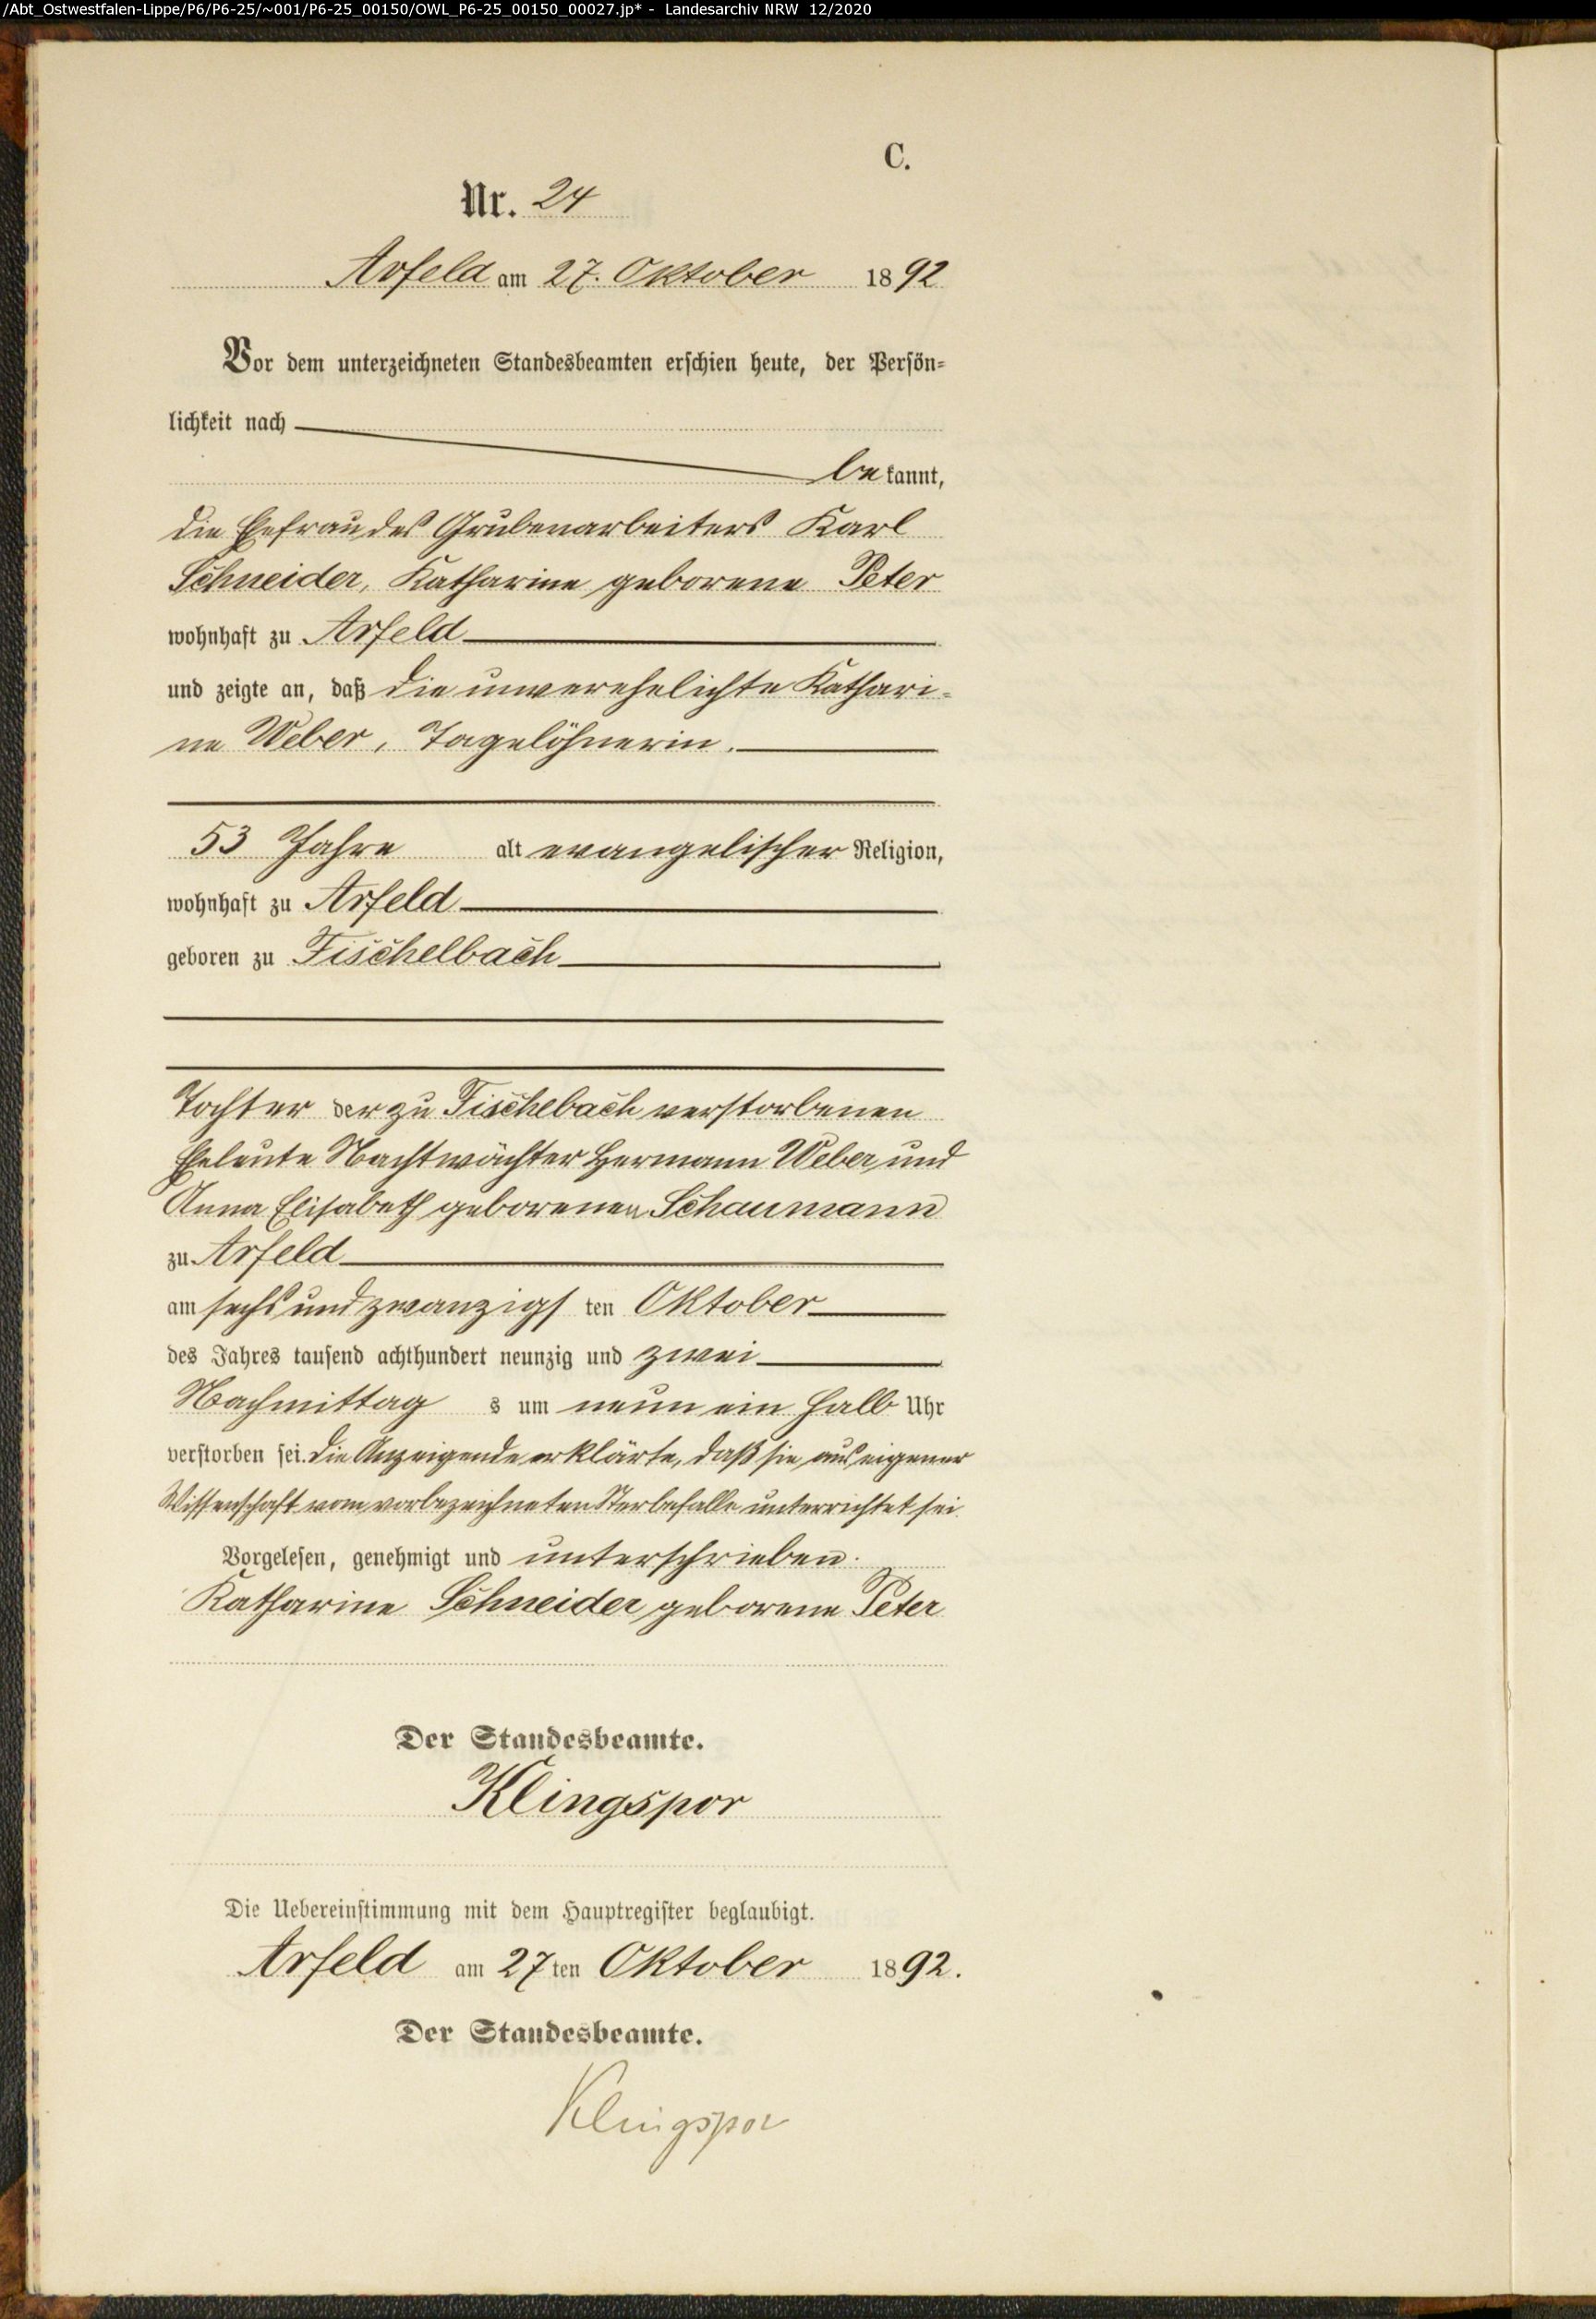 /Abt_Ostwestfalen-Lippe/P6/P6-25/~001/P6-25_00150/OWL_P6-25_00150_00027.jp* - Landesarchiv NRW 12/2020
C.
Nr. 24
Arfeld am 27. Oktober 1892
Vor dem unterzeichneten Standesbeamten erschien heute, der Persön-
lichkeit nach
bekannt,
die Ehefrau des Grubenarbeiters Karl
Schneider, Katharine geborene Peter
wohnhaft zu Arfeld
und zeigte an, daß die unverehelichte Kathari-
ne Weber, Tagelöhnerin.
53 Jahre alt evangelischer Religion,
wohnhaft zu Arfeld
geboren zu Fischelbach
Tochter der zu Fischebach verstorbenen
Eheleute Nachtwächter Hermann Weber und
Anna Elisabeth geborenen Schaumann
zu Arfeld
am sechs und zwanzigsten Oktober
des Jahres tausend achthundert neunzig und zwei
Nachmittags um neun ein halb Uhr
verstorben sei. Die Anzeigende erklärte, daß sie aus eigener
Wissenschaft vom vorbezeichneten Sterbefalle unterrichtet sei.
Vorgelesen, genehmigt und unterschrieben.
Katharine Schneider geborene Peter
Der Standesbeamte.
Klingspor
Die Uebereinstimmung mit dem Hauptregister beglaubigt.
Arfeld am 27ten Oktober 1892.
Der Standesbeamte.
Klingspor